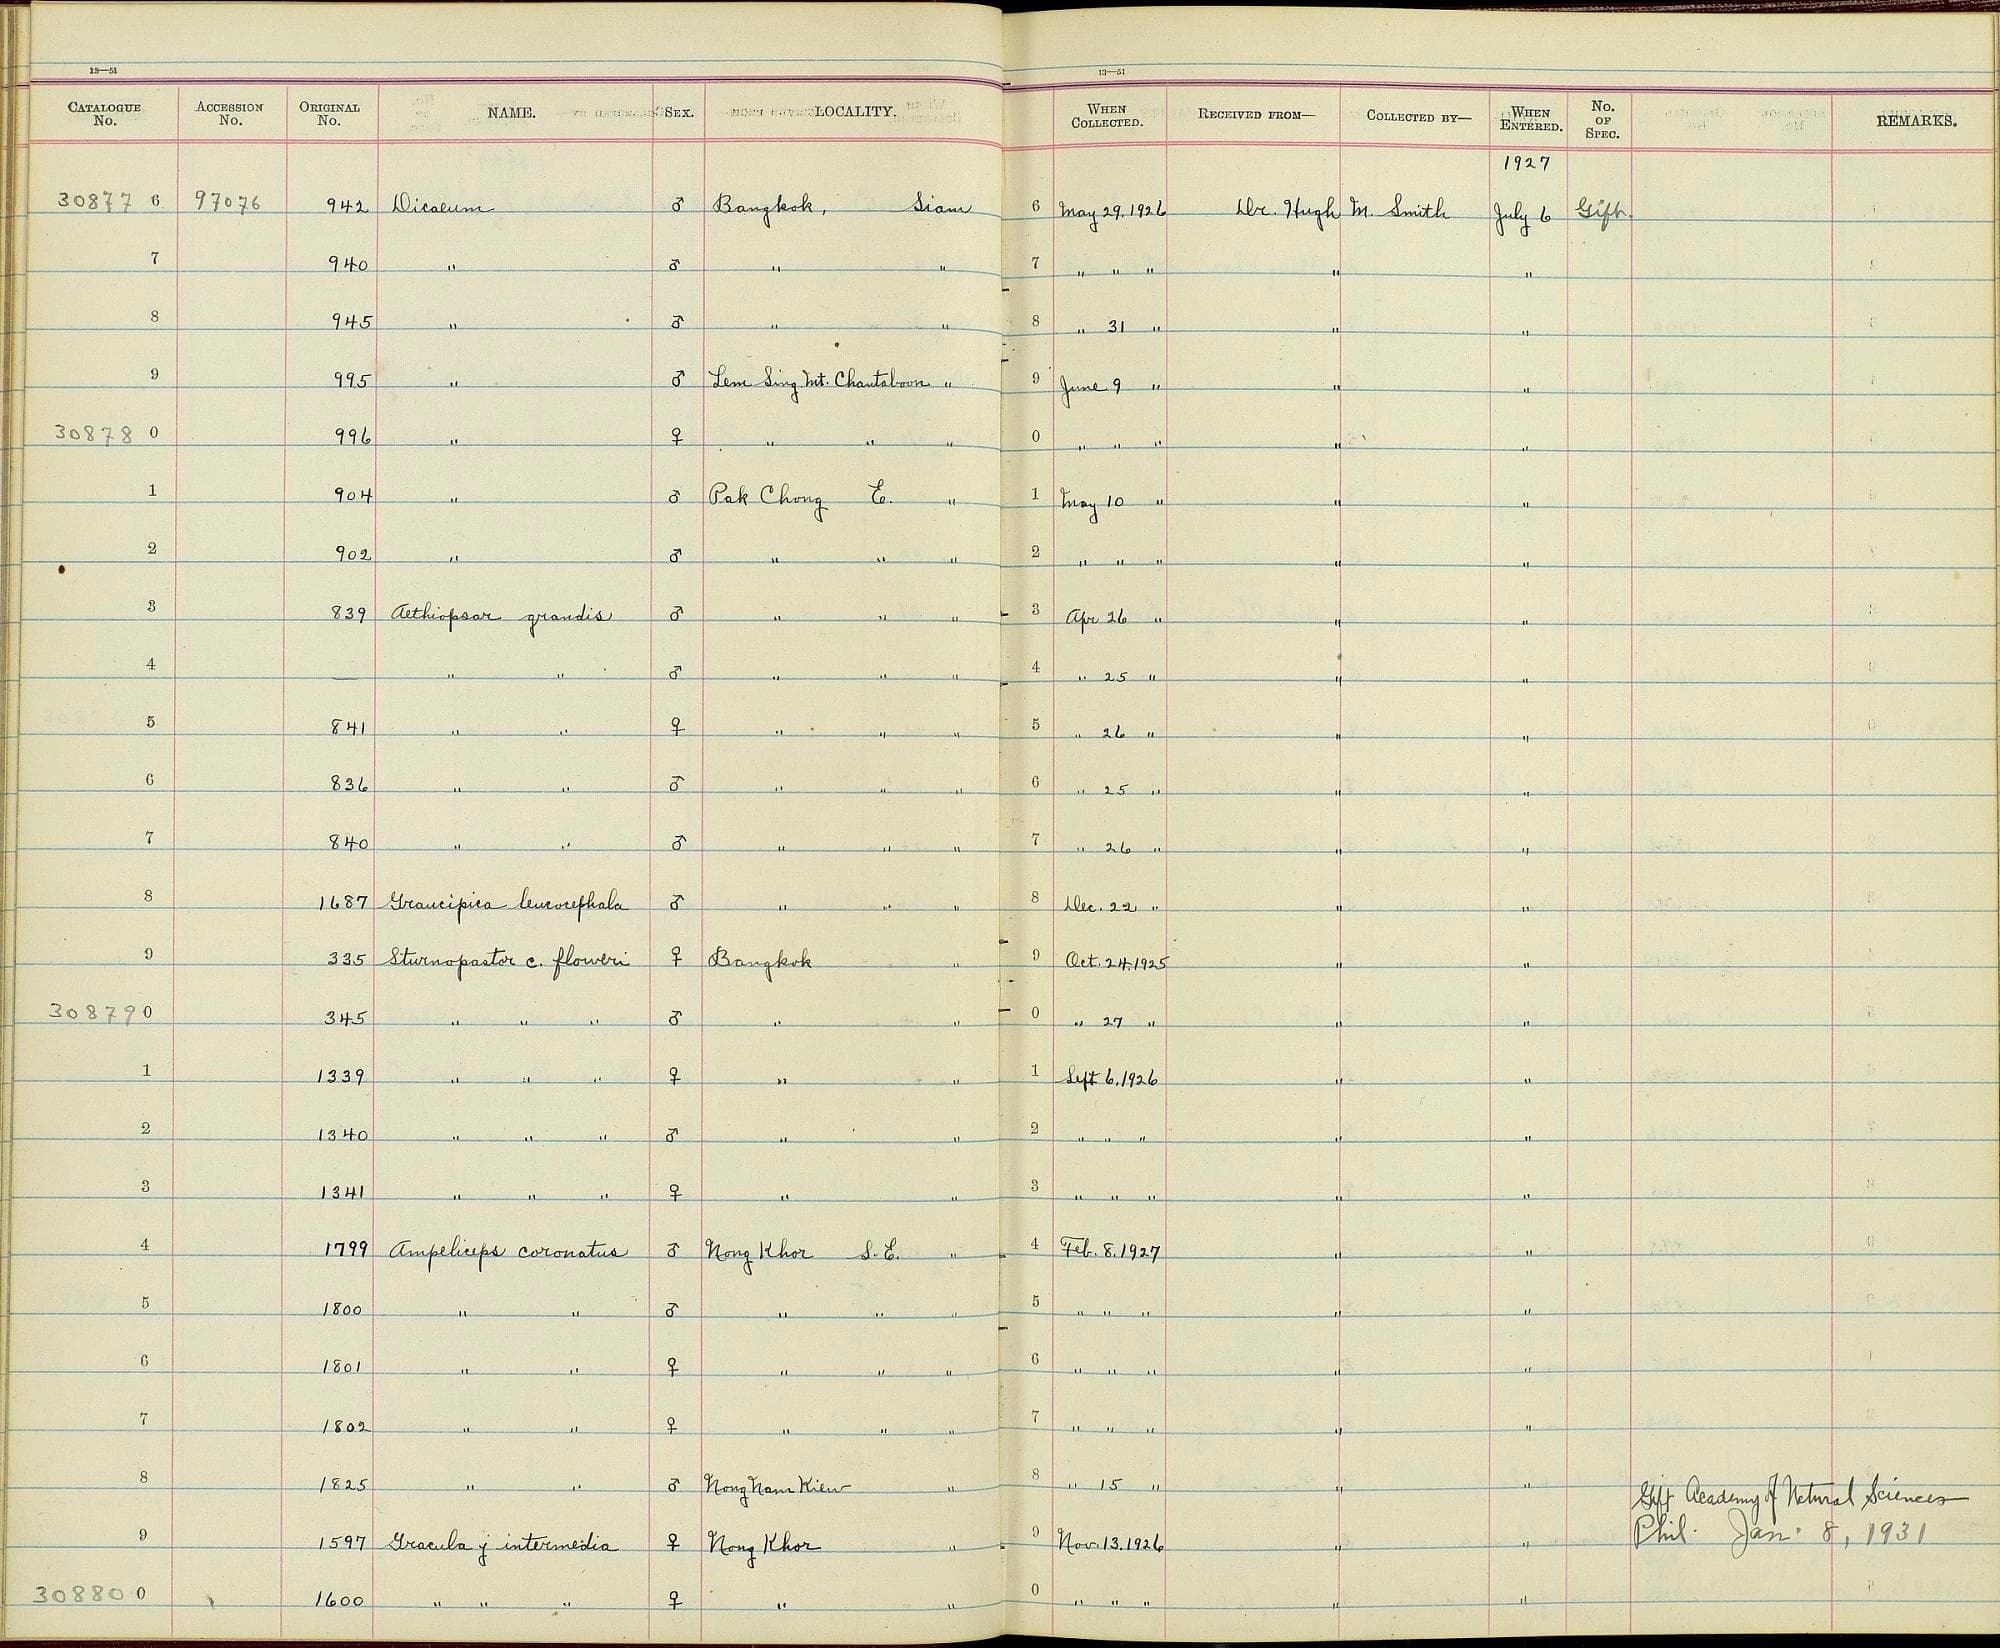 13—51 13—51
CATALOGUE No. ACCESSION No. ORIGINAL No. NAME. SEX. LOCALITY. WHEN COLLECTED. RECEIVED FROM— COLLECTED BY— WHEN ENTERED. No. OF SPEC. REMARKS.
1927
30877 6 97076 942 Dicaeum ♂ Bangkok, Siam 6 May 29. 1926 Dr. Hugh M. Smith July 6 Gift.
7 940 " ♂ " " 7 " " " " "
8 945 " ♂ " " 8 " 31 " " "
9 995 " ♂ Lem Sing Mt. Chantaboon " 9 June 9 " " "
30878 0 996 " ♀ " " " 0 " " " " "
1 904 " ♂ Pak Chong E. " 1 May 10 " " "
2 902 " ♂ " " " 2 " " " " "
3 839 Aethiopsar grandis ♂ " " " 3 Apr 26 " " "
4 — " " ♂ " " " 4 " 25 " " "
5 841 " " ♀ " " " 5 " 26 " " "
6 836 " " ♂ " " " 6 " 25 " " "
7 840 " " ♂ " " " 7 " 26 " " "
8 1687 Graucipica leucocephala ♂ " " " 8 Dec. 22 " " "
9 335 Sturnopastor c. floweri ♀ Bangkok " 9 Oct. 24. 1925 " "
30879 0 345 " " " ♂ " " 0 " 27 " " "
1 1339 " " " ♀ " " 1 Sept 6. 1926 " "
2 1340 " " " ♂ " " 2 " " " " "
3 1341 " " " ♀ " " 3 " " " " "
4 1799 Ampeliceps coronatus ♂ Nong Khor S. E. " 4 Feb. 8. 1927 " "
5 1800 " " ♂ " " " 5 " " " " "
6 1801 " " ♀ " " " 6 " " " " "
7 1802 " " ♀ " " " 7 " " " " "
8 1825 " " ♂ Nong Nam Kiew " 8 " 15 " " " Gift Academy of Natural Sciences
9 1597 Gracula j intermedia ♀ Nong Khor " 9 Nov. 13. 1926 " " Phil. Jan. 8, 1931
30880 0 1600 " " " ♀ " " 0 " " " " "